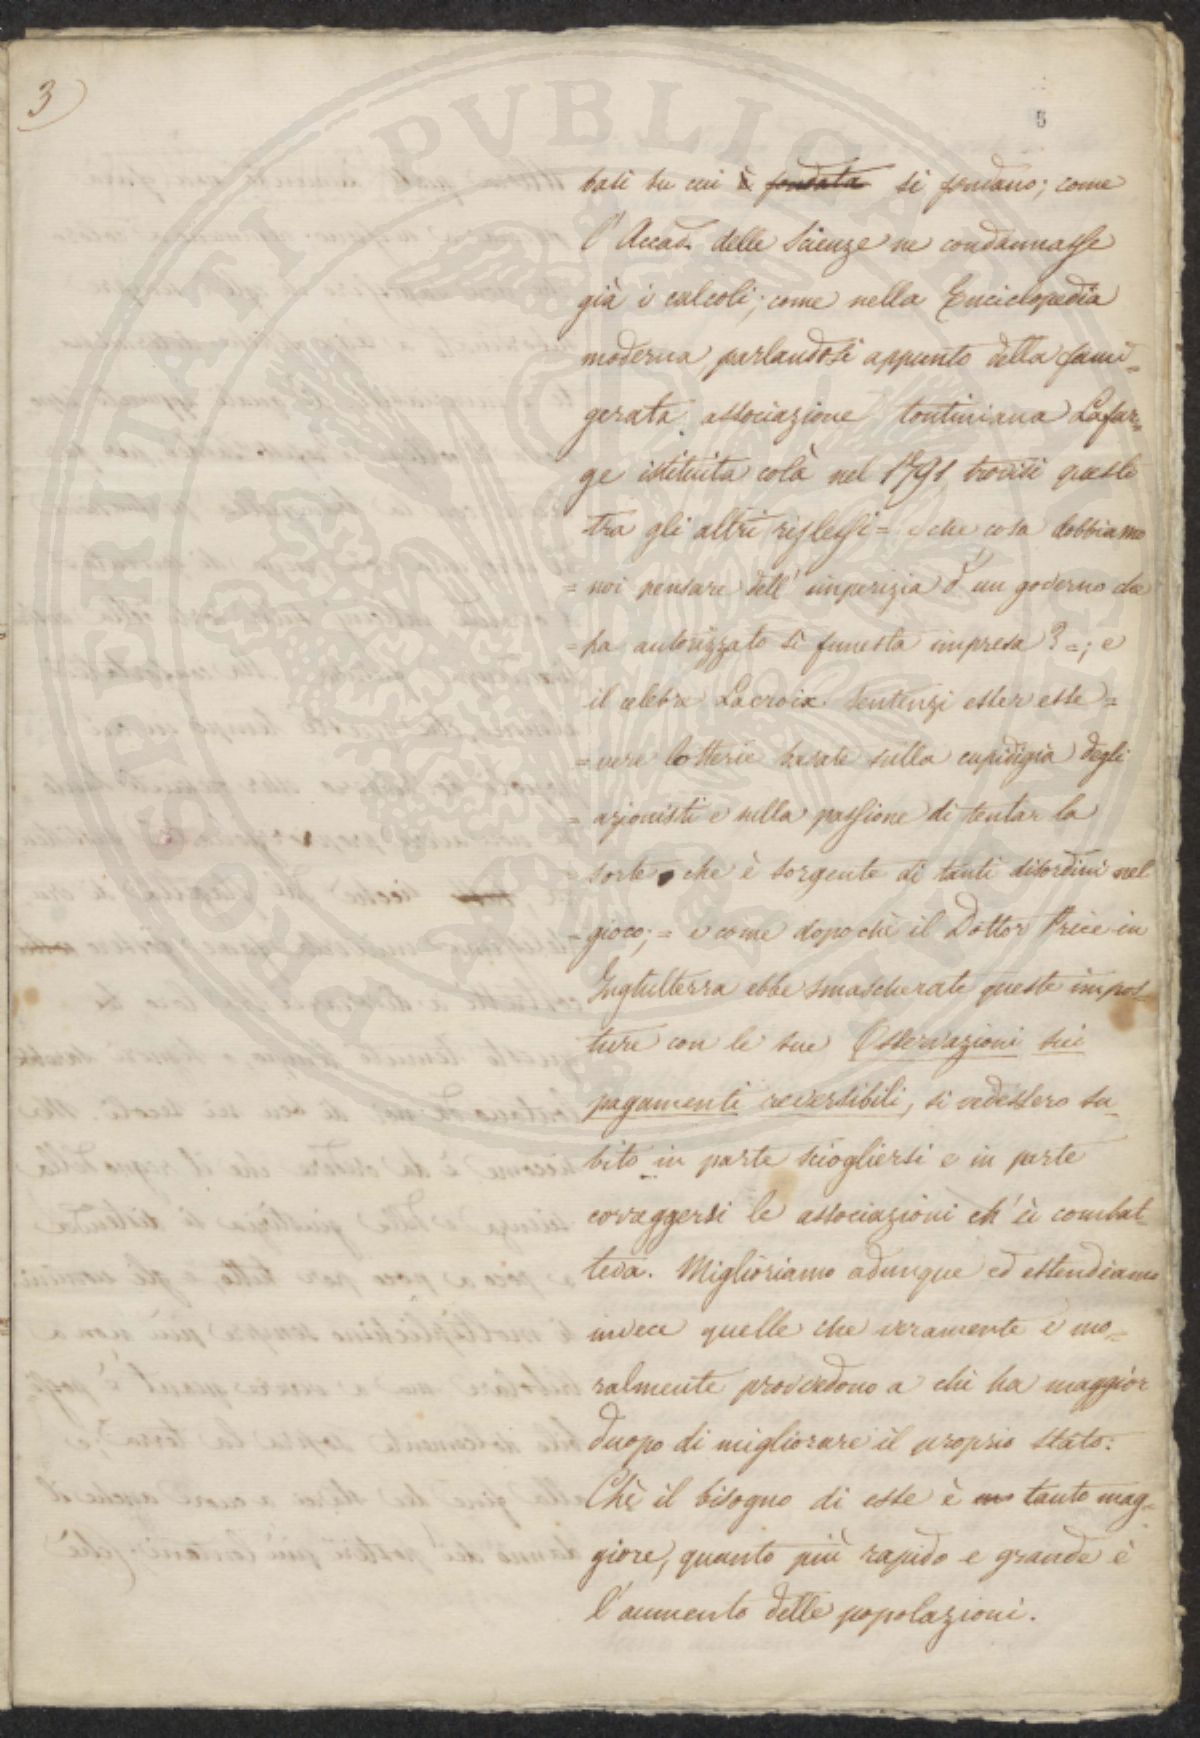 3)
5
basi su cui è fondata si fondano; come
l'Accad. delle Scienze ne condannasse
già i calcoli; come nella Enciclopedia
moderna, parlandosi appunto della fami=
gerata associazione tontiniana Lafar=
ge istituita colà nel 1791 trovisi questo
tra gli altri riflessi = e che cosa dobbiamo
= noi pensare dell'imperizia d'un governo che
= ha autorizzato sì funesta impresa? =; e
il celebre Lacroix sentenzi esser esse =
= vere lotterie basate sulla cupidigia degli
= azionisti e sulla passione di tentar la
= sorte che è sorgente di tanti disordini nel
= gioco; = e come dopo chè il Dottor Price in
Inghilterra ebbe smascherate queste impos=
ture con le sue Osservazioni sui
pagamenti reversibili, si vedessero su=
bito in parte sciogliersi e in parte
correggersi le associazioni ch'ei combat=
teva. Miglioriamo adunque ed estendiamo
invece quelle che veramente e mo=
ralmente provvedono a chi ha maggior
duopo di migliorare il proprio stato:
Chè il bisogno di esse è tanto mag=
giore, quanto più rapido e grande è
l'aumento delle popolazioni.